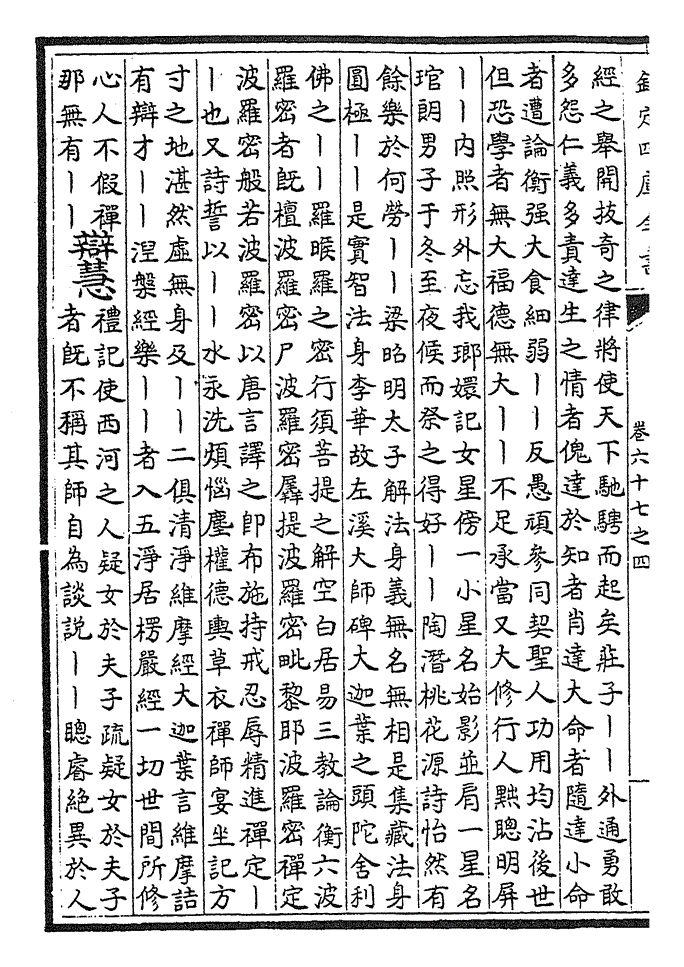 欽定四庫全書
卷六十七之四
經之舉開技奇之律將使天下馳騁而起矣莊子丨丨外通勇敢
多怨仁義多責達生之情者傀達於知者肖達大命者隨達小命
者遭論衡强大食細弱丨丨反愚頑參同契聖人功用均沾後世
但恐學者無大福德無大丨丨不足承當又大修行人黜聰明屏
丨丨内照形外忘我瑯嬛記女星傍一小星名始影並肩一星名
琯朗男子于冬至夜候而祭之得好丨丨陶潛桃花源詩怡然有
餘樂於何勞丨丨梁昭明太子解法身義無名無相是集藏法身
圓極丨丨是實智法身李華故左溪大師碑大迦葉之頭陀舍利
佛之丨丨羅睺羅之密行須菩提之解空白居易三教論衡六波
羅密者旣檀波羅密尸波羅密羼提波羅密毗黎耶波羅密禪定
波羅密般若波羅密以唐言譯之卽布施持戒忍辱精進禪定丨
丨也又詩誓以丨丨水永洗煩惱塵權德輿草衣禪師宴坐記方
寸之地湛然虛無身及丨丨二俱清淨維摩經大迦葉言維摩詰
有辯才丨丨涅槃經樂丨丨者入五淨居楞嚴經一切世間所修
心人不假禪
那無有丨丨
辯慧
禮記使西河之人疑女於夫子疏疑女於夫子
者旣不稱其師自為談說丨丨聰睿絶異於人